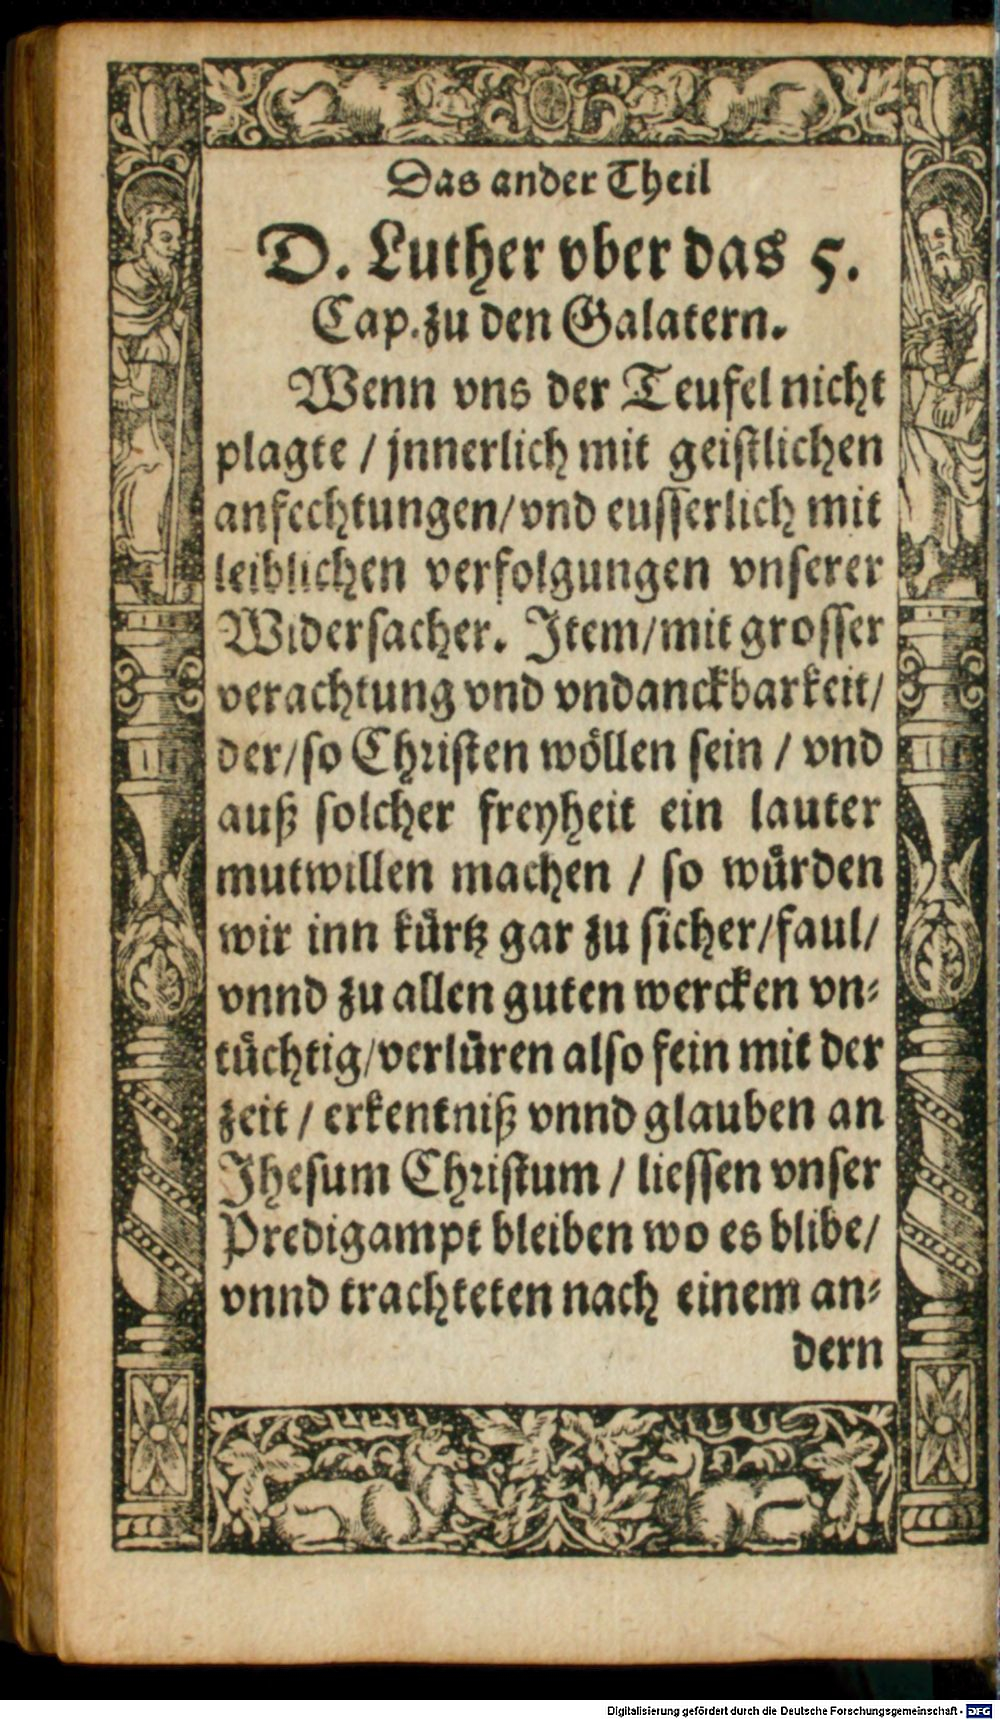 Das ander Theil
D. Luther vber das 5.
Cap. zu den Galatern.
Wenn vns der Teufel nicht
plagte / jnnerlich mit geistlichen
anfechtungen / vnd eusserlich mit
leiblichen verfolgungen vnserer
Widersacher. Item / mit grosser
verachtung vnd vndanckbarkeit /
der / so Christen wöllen sein / vnd
auß solcher freyheit ein lauter
mutwillen machen / so würden
wir inn kürtz gar zu sicher / faul /
vnnd zu allen guten wercken vn-
tüchtig / verlüren also fein mit der
zeit / erkentniß vnnd glauben an
Jhesum Christum / liessen vnser
Predigampt bleiben wo es blibe /
vnnd trachteten nach einem an-
dern
Digitalisierung gefördert durch die Deutsche Forschungsgemeinschaft - DFG